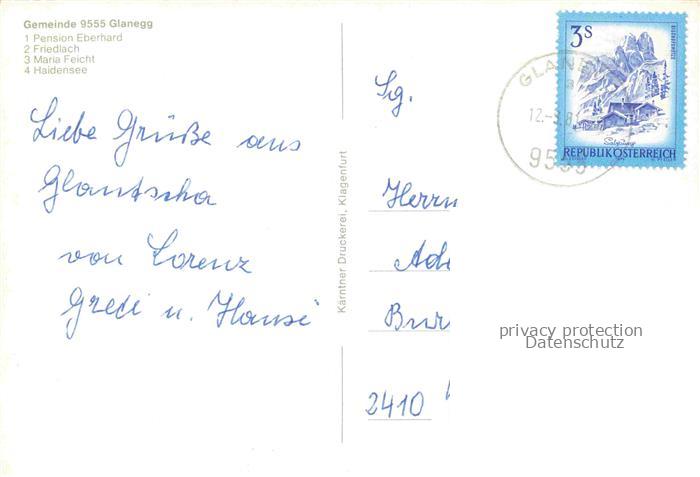 Gemeinde 9555 Glanegg
1 Pension Eberhard
2 Friedlach
3 Maria Feicht
4 Haidensee
Liebe Grüße aus
Glantscha
von Lorenz
Gredi u. Hansi
Kärntner Druckerei, Klagenfurt
3S
REPUBLIK ÖSTERREICH
GLANE
12.
9555
Sg.
Herrn
Ad
Bur
2410
privacy protection
Datenschutz